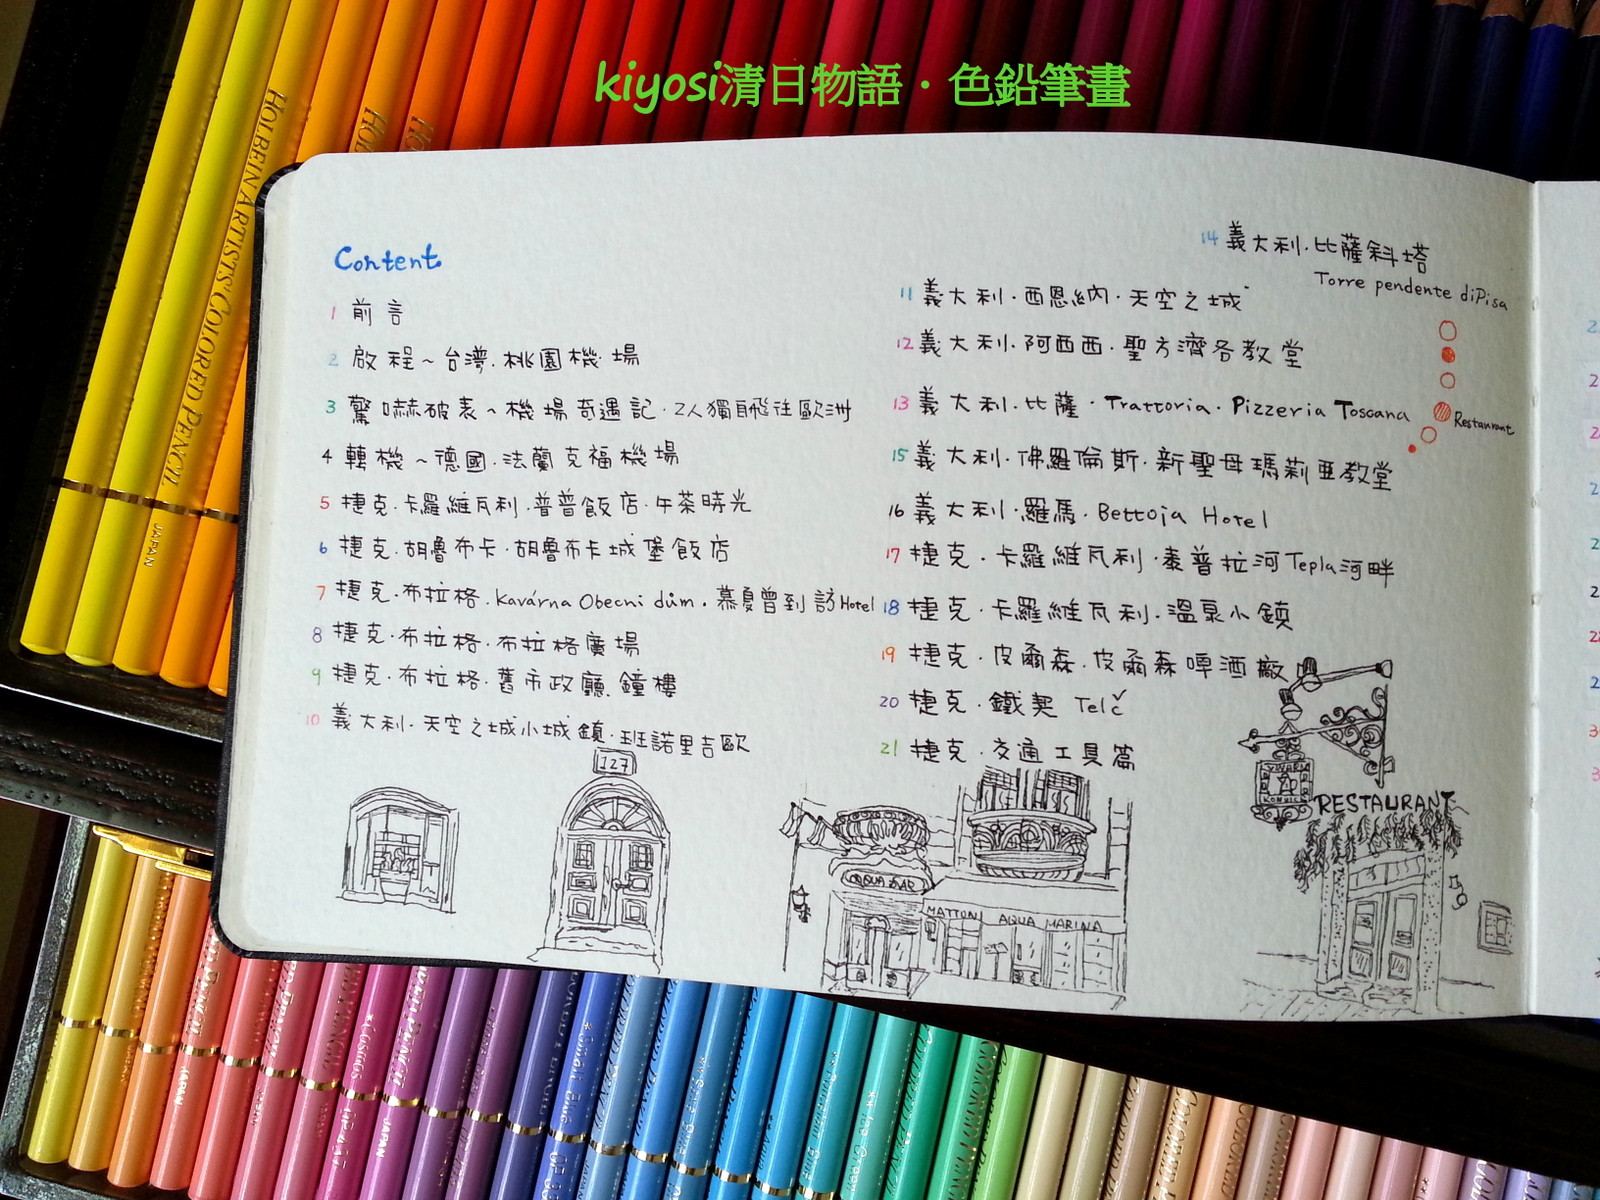 kiyosi清日物語·色鉛筆畫
HOLBEIN ARTISTS' COLORED PENCIL
JAPAN
Content
1 前言
2 啟程~台灣.桃園機場
3 驚嚇破表~機場奇遇記.2人獨自飛往歐洲
4 轉機~德國.法蘭克福機場
5 捷克.卡羅維瓦利.普普飯店.午茶時光
6 捷克.胡魯布卡.胡魯布卡城堡飯店
7 捷克.布拉格.Kavárna Obecní dům.慕夏曾到訪Hotel
8 捷克.布拉格.布拉格廣場
9 捷克.布拉格.舊市政廳.鐘樓
10 義大利.天空之城小城鎮.班諾里吉歐
11 義大利.西恩納.天空之城
12 義大利.阿西西.聖方濟各教堂
13 義大利.比薩.Trattoria.Pizzeria Toscana
Restaurant
14 義大利.比薩斜塔
Torre pendente di Pisa
15 義大利.佛羅倫斯.新聖母瑪莉亞教堂
16 義大利.羅馬.Bettoja Hotel
17 捷克.卡羅維瓦利.泰普拉河Tepla河畔
18 捷克.卡羅維瓦利.溫泉小鎮
19 捷克.皮爾森.皮爾森啤酒廠
20 捷克.鐵契 Telč
21 捷克.交通工具篇
127
AQUA BAR
MATTONI AQUA MARINA
RESTAURANT